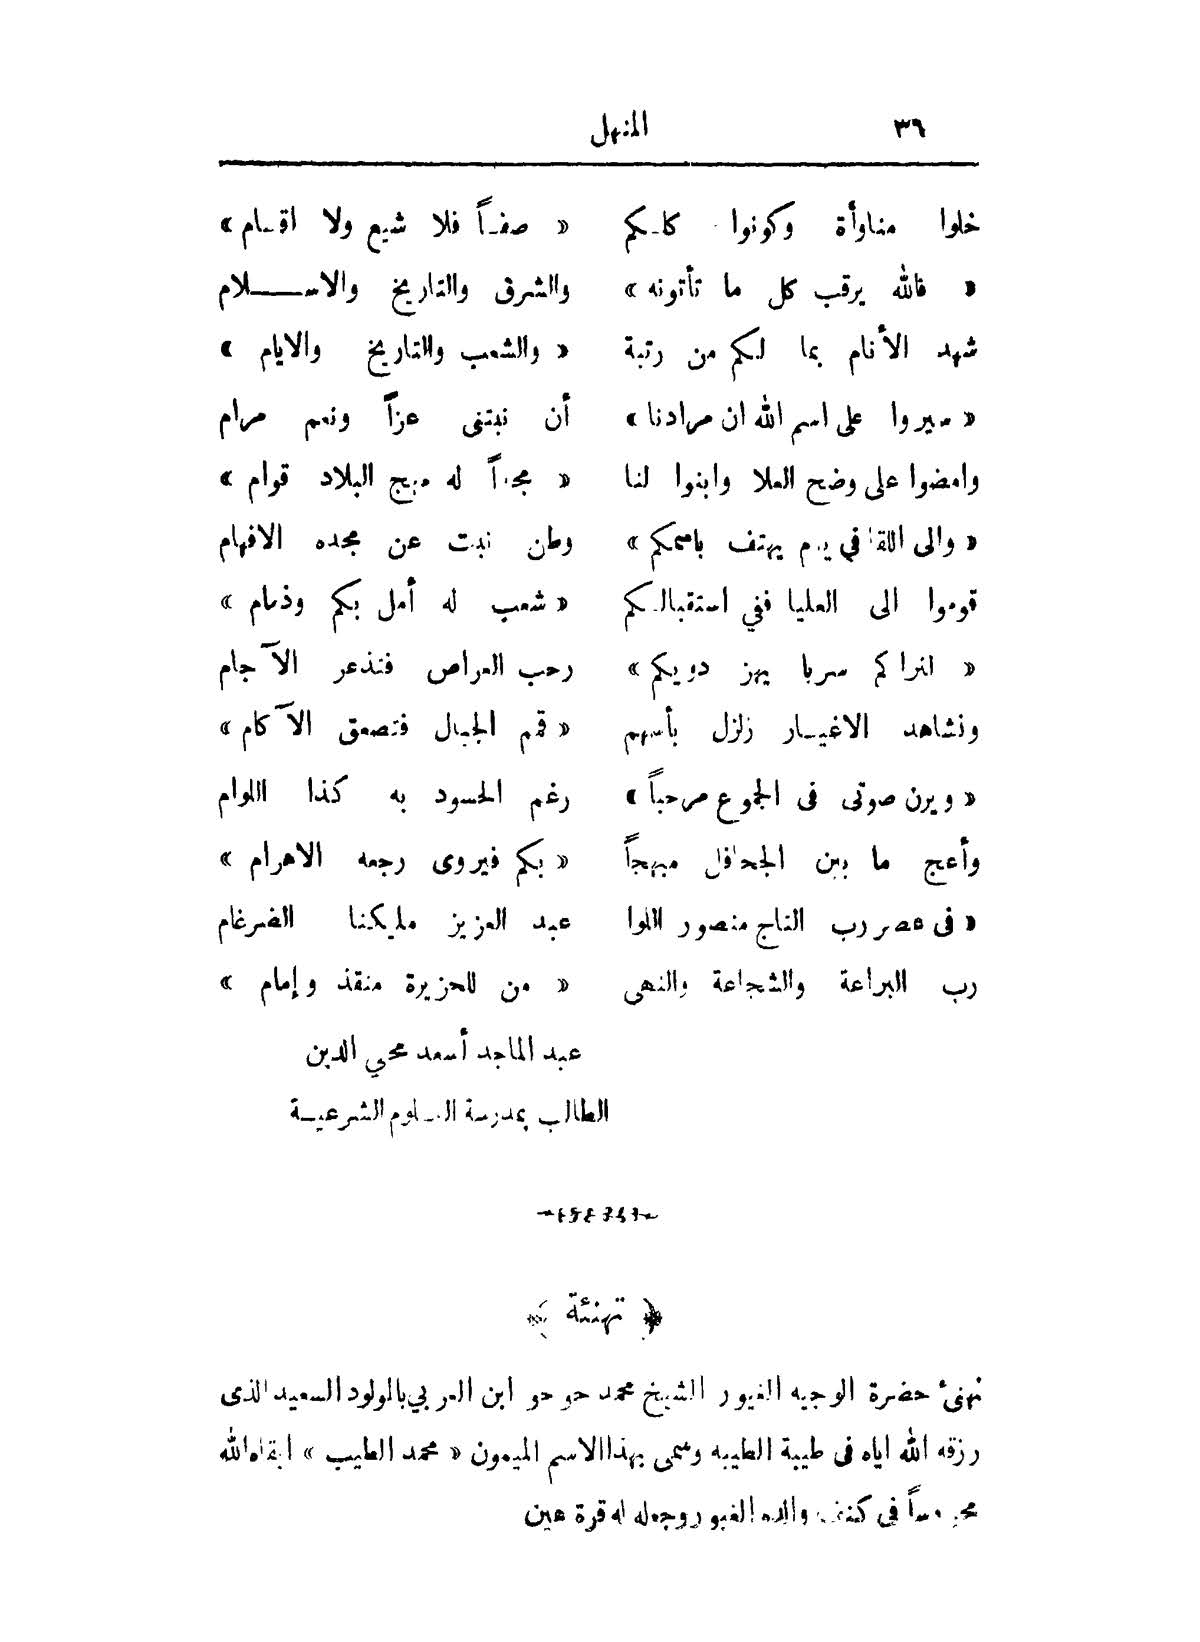 ٣٦ المنهل
خلوا مناوأة وكونوا كلكم « صفاً فلا شيع ولا اقسام »
« فالله يرقب كل ما تأتونه » والشرق والتاريخ والاسلام
شهد الأنام بما لكم من رتبة « والشعب والتاريخ والايام »
« سيروا على اسم الله ان مرادنا » أن نبتنى عزاً ونعم مرام
وامضوا على وضح العلا وابنوا لنا « مجداً له مهج البلاد قوام »
« والى اللقا في يوم يهتف باسمكم » وطن نبت عن مجده الافهام
قوموا الى العليا ففي استقبالكم « شعب له أمل بكم وذمام »
« لنراكم سربا يهز دويكم » رحب العراص فتذعر الآجام
ونشاهد الاغيار زلزل بأسهم « قمم الجبال فتصعق الآكام »
« ويرن صوتى فى الجموع مرحباً » رغم الحسود به كذا اللوام
وأعج ما بين الجحافل مبهجاً « بكم فيروى رجعه الاهرام »
« فى عصر رب التاج منصور اللوا عبد العزيز مليكنا الضرغام
رب البراعة والشجاعة والنهى « من للجزيرة منقذ وإمام »
عبد الماجد أسعد محي الدين
الطالب بمدرسة العلوم الشرعية
﴿ تهنئة ﴾
نهنئ حضرة الوجيه الغيور الشيخ محمد حوحو ابن العربي بالمولود السعيد الذى
رزقه الله اياه فى طيبة الطيبه وسمى بهذا الاسم الميمون « محمد الطيب » ابقاه الله
محروساً في كنف والده الغيور وجعله له قرة عين